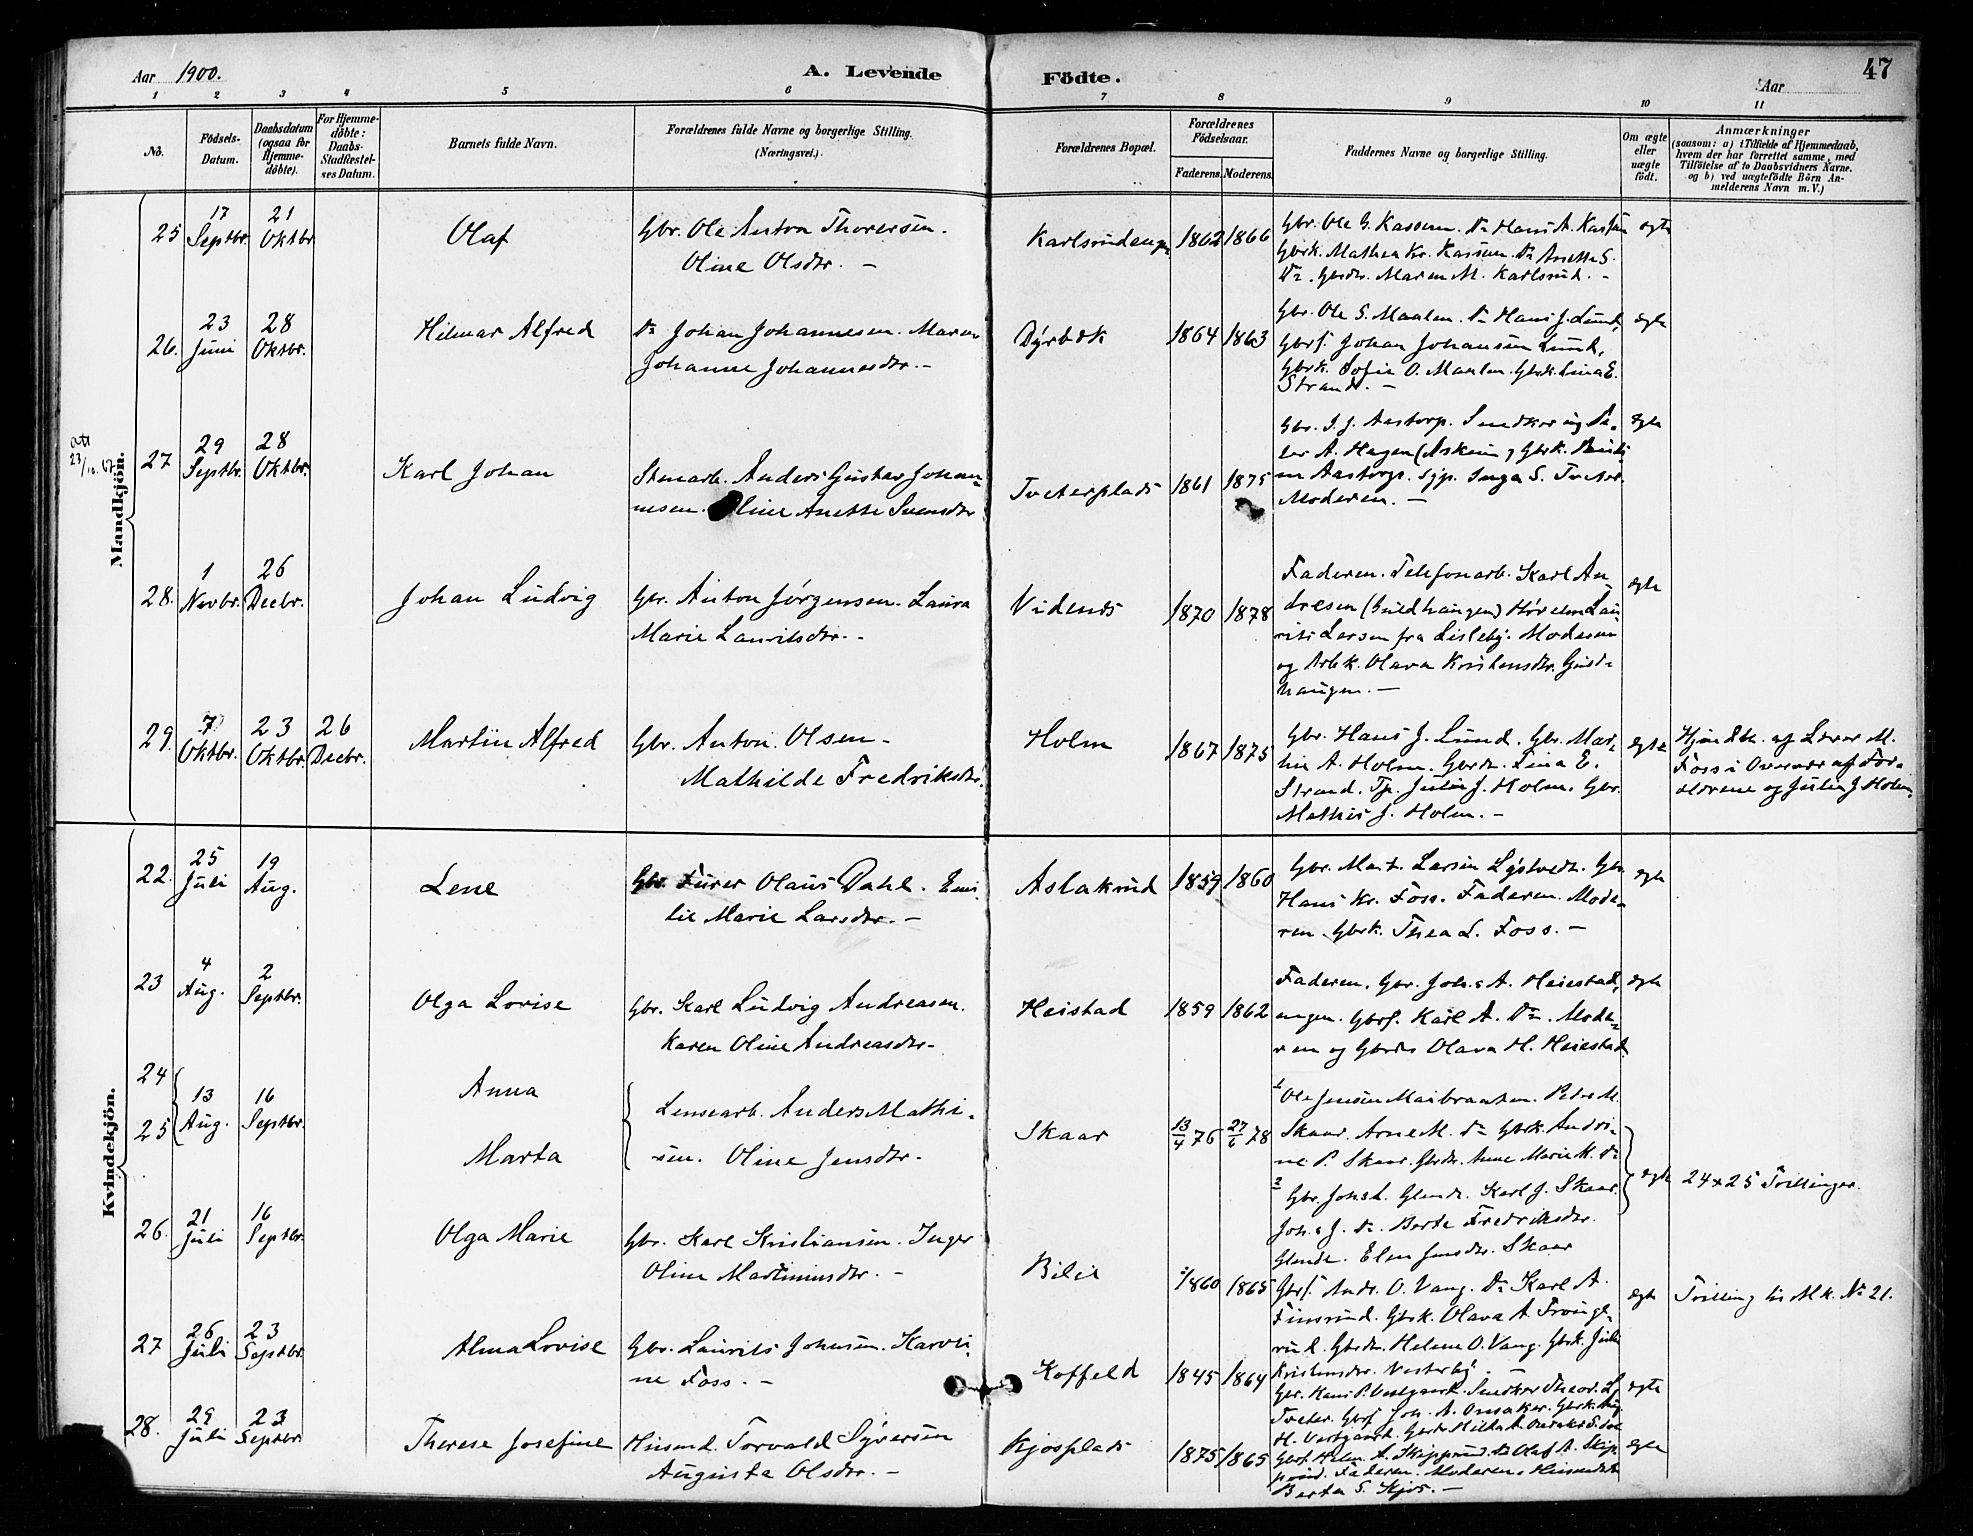 47
Aar 1900.
A. Levende
Födte.
Aar
1 2 3 4 5 6 7 8 9 10 11
No.
Födsels-
Datum.
Daabsdatum
(ogsaa for
Hjemme-
döbte).
For Hjemme-
döbte:
Daabs-
Stadfæstel-
ses Datum.
Barnets fulde Navn.
Forældrenes fulde Navne og borgerlige Stilling.
(Næringsvei.)
Forældrenes Bopæl.
Forældrenes
Födselsaar.
Faderens. Moderens.
Faddernes Navne og borgerlige Stilling.
Om ægte
eller
uægte
födt.
Anmærkninger
(saasom: a) i Tilfælde af Hjemmedaab,
hvem der har forrettet samme, med
Tilföielse af to Daabsvidners Navne.
og b) ved uægtefödte Börn An-
melderens Navn m. V.)
Mandkjön.
25 17 Septbr. 21 Oktbr. Olaf
Gbr. Ole Anton Thoresen.
Oline Olsdtr. –
1862 1866
Gbr. Ole G. Kassen. Do Hans A. Kassen
Gbrk. Mathea Kr. Kassen. Do Anette S.
Do. Gbrdtr. Maren M. Karlsrud. –
ægte
26. 23 Juni 28 Oktbr. Hilmar Alfred
Do Johan Johannesen. Maren
Johanne Johannesdtr. –
Dyrbæk
1864 1863
Gbr. Ole S. Maalen. Do Hans J. Lund,
Gbrs. Johan Johansen Lund,
Gbrk. Sofie O. Maalen. Gbrk. Lina E.
Strand. –
ægte
27 29 Septbr. 28 Oktbr. Karl Johan
Stenarb. Anders Gustav Johan-
nesen. Oline Anette Svensdtr
Tveterplads
1861 1875
Gbr. J. J. Aastorp. Snedker og
A. Hagen (Askim) Gbrk.
Aastorp. Inga S. Tveter.
Moderen. –
ægte
28. 1 Novbr. 26 Decbr. Johan Ludvig
Gbr. Anton Jørgensen. Laura
Marie Lauritsdtr. –
Videnes
1870 1878
Faderen. Telefonarb. Karl An-
dresen (Guldhaugen) Lau-
rits Larsen fra Lisleby. Moderen
og Arbk. Olava Kristensdtr. Guld-
haugen. –
ægte
29. 7 Oktbr. 23 Oktbr. 26 Decbr. Martin Alfred
Gbr. Anton Olsen –
Mathilde Fredriksdtr.
Holm
1867 1875
Gbr. Hans J. Lund. Gbr. Mat-
his A. Holm. Gbrdtr. Lina E.
Strand. Tp. Julie J. Holm. Gbr.
Mathis J. Holm. –
ægte
Hjmdbt. af Lærer M.
Foss i Overvær af For-
ældrene og Julie J Holm.
Kvindekjön.
22. 25 Juli 19 Aug. Lene
Gbr. Fører Olaus Dahl. Emi-
lie Marie Larsdtr. –
Aslakrud
1859 1860
Gbr. Mart. Larsen Løstvedt. Gbr
Hans Kr. Foss. Faderen. Mode-
ren. Gbrk. Thea L. Foss. –
ægte
23 4 Aug. 2 Septbr. Olga Lovise
Gbr. Karl Ludvig Andreasen.
Karen Oline Andreasdtr.
Heistad
1859 1862
Faderen. Gbr. Johs A. Heiestad,
ungm. Gbrs. Karl A. Do. Mode-
ren og Gbrdtr Olava H. Heiestad
ægte
24 13 Aug. 16 Septbr. Anna
25 Marta
Lensearb. Anders Mathi-
sen. Oline Jensdtr.
Skaar
13/4 76 27/6 78
1 Ole Jensen Maibraaten. Peder M.
Skaar. Arne M. Do Gbrk. Andri-
ne P. Skaar. Gbrdtr. Anne Marie M. Do
2 Gbr. Johs L. Glende. Karl J. Skaar.
Johs J. Do. Berte Fredriksdtr.
Glende. Elen Jensdtr. Skaar
ægte
24 + 25 Tvillinger.
26. 21 Juli 16 Septbr. Olga Marie
Gbr. Karl Kristiansen. Inger
Oline Martinusdtr. –
Bilit
1860 1865
Gbrs. Andr. O. Vang. Do Karl A.
Finsrud. Gbrk. Olava A.
Gbrdtr. Helene O. Vang. Gbrk. Julie
Kristensdtr. Vesterby. –
ægte
Tvilling til M. k. No 21.
27 26 Juli 23 Septbr. Alma Lovise
Gbr. Laurits Johnsen. Karoli-
ne Foss. –
Koffeld
1845 1864
Gbr. Hans P. Vestgaard. Snedker Theod. L.
Tveter. Gbrs. Joh. A. Onsaker. Gbrk. Aug.
H. Vestgaard.
ægte
28. 29 Juli 23 Septbr. Therese Josefine
Husmd. Torvald Syversen
Augusta Olsdtr. –
Kjosplads
1875 1865
Do Olaf A.
Faderen. Moderen.
Berta S. Kjos. –
ægte